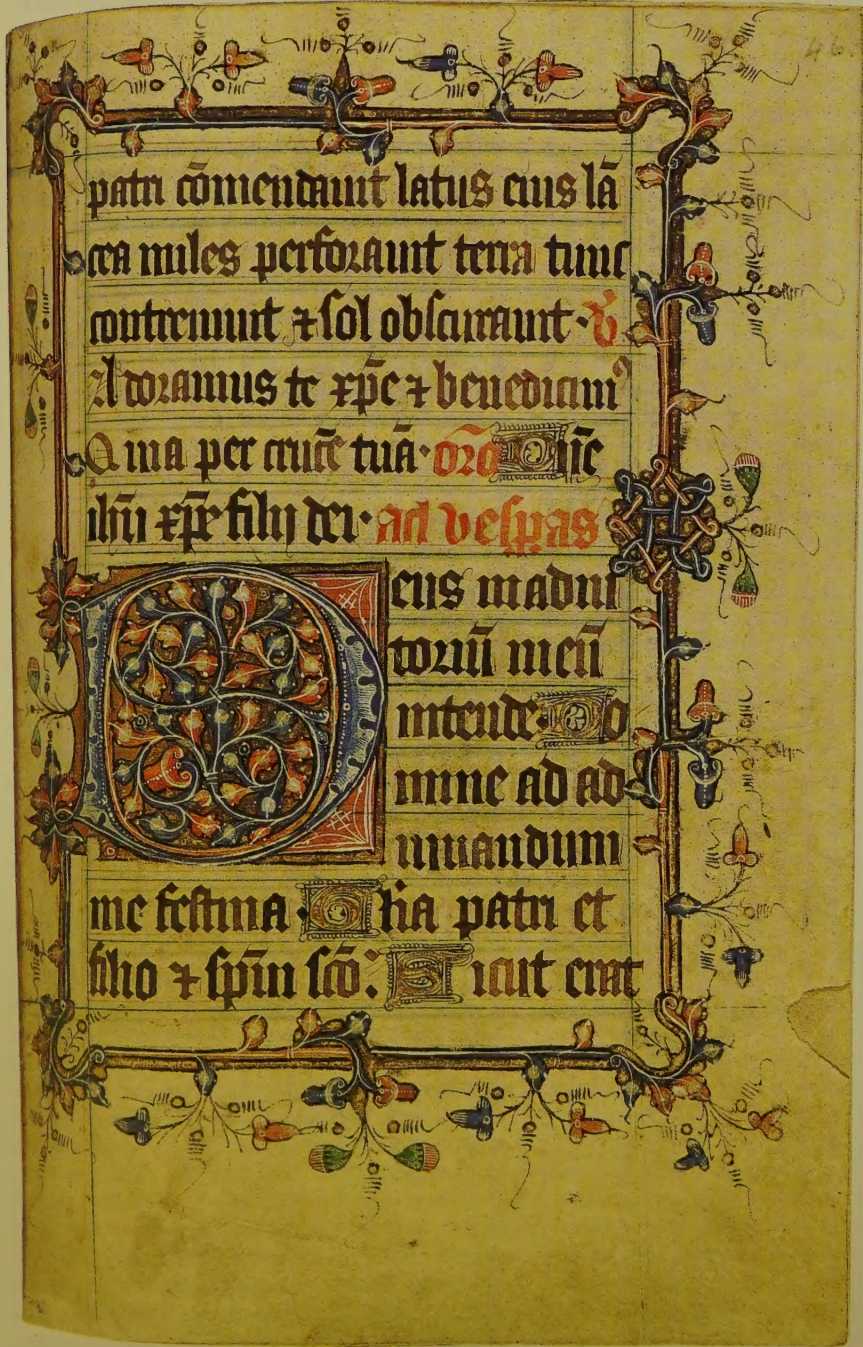 46.
patri cōmendauit latus eius lā
cea miles perforauit terra tunc
contremuit ⁊ sol obscurauit · V̄
Adoramus te xp̄e ⁊ benedicimꝰ
Quia per crucē tuā · orō Dn̄e
ihū xp̄e filij dei · ad vespas
Deus in adiu
toriū meū
intende · Do
mine ad ad
iuuandum
me festina · Glīa patri et
filio ⁊ sp̄iu scō : Sicut erat